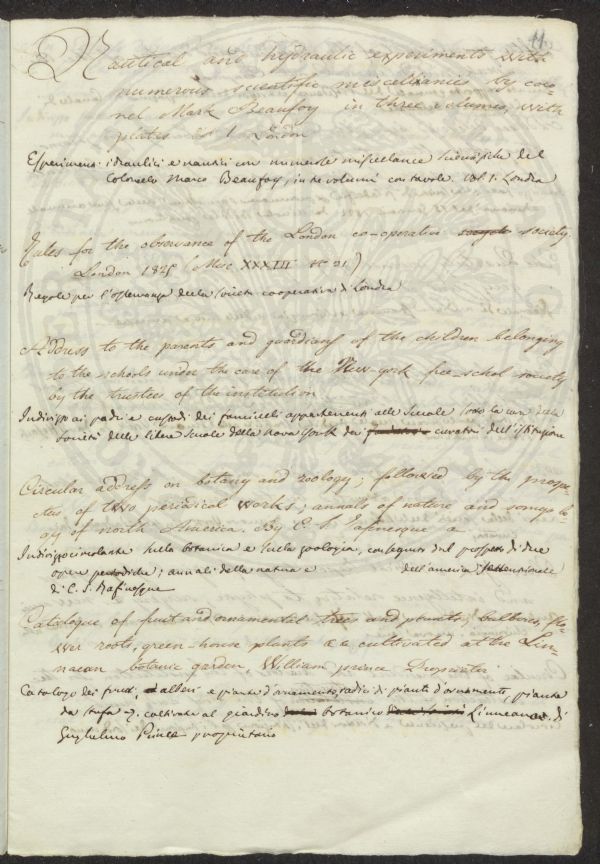 11
Nautical and hydraulic experiments with
numerous scientific miscellanies by colo=
nel Mark Beaufoy in three volumes, with
plates vol 1 London
Esperimenti idraulici e nautici con numerose miscellanee scientifiche del
Colonello Marco Beaufoy, in tre volumi con tavole. vol 1. Londra
Rules for the observance of the London co-operative society.
London 1825 (Misc XXXIII N° 21)
Regole per l'osservanza della società cooperativa di Londra
Address to the parents and guardians of the children belonging
to the schools under the care of the New-york free-schol society
by the trustees of the institution
Indirizzo ai padri e custodi dei fanciulli appartenenti alle scuole sotto la cura della
società delle libere scuole della nova York dei curatori dell'istituzione
Circular address on botany and zoology; followed by the prospe-
ctus of two periodical works; annals of nature and somiolo
gy of north America. By C. S. Rafinesque
Indirizzo circolante sulla botanica e sulla zoologia, con seguito del prospetto di due
opere periodiche; annali della natura e dell'america settentrionale
di C. S. Rafinesque
Catalogue of fruit and ornamental trees and plants, bulbous, flo-
wer roots, green-house plants &c cultivated at the Lin-
naean botanic garden, William prince Proprietor
Catalogo dei frutti, alberi e piante d'ornamento, radici di piante d'ornamento, piante
da stufa &. coltivate al giardino botanico Linneano. di
Guglielmo Prince proprietario